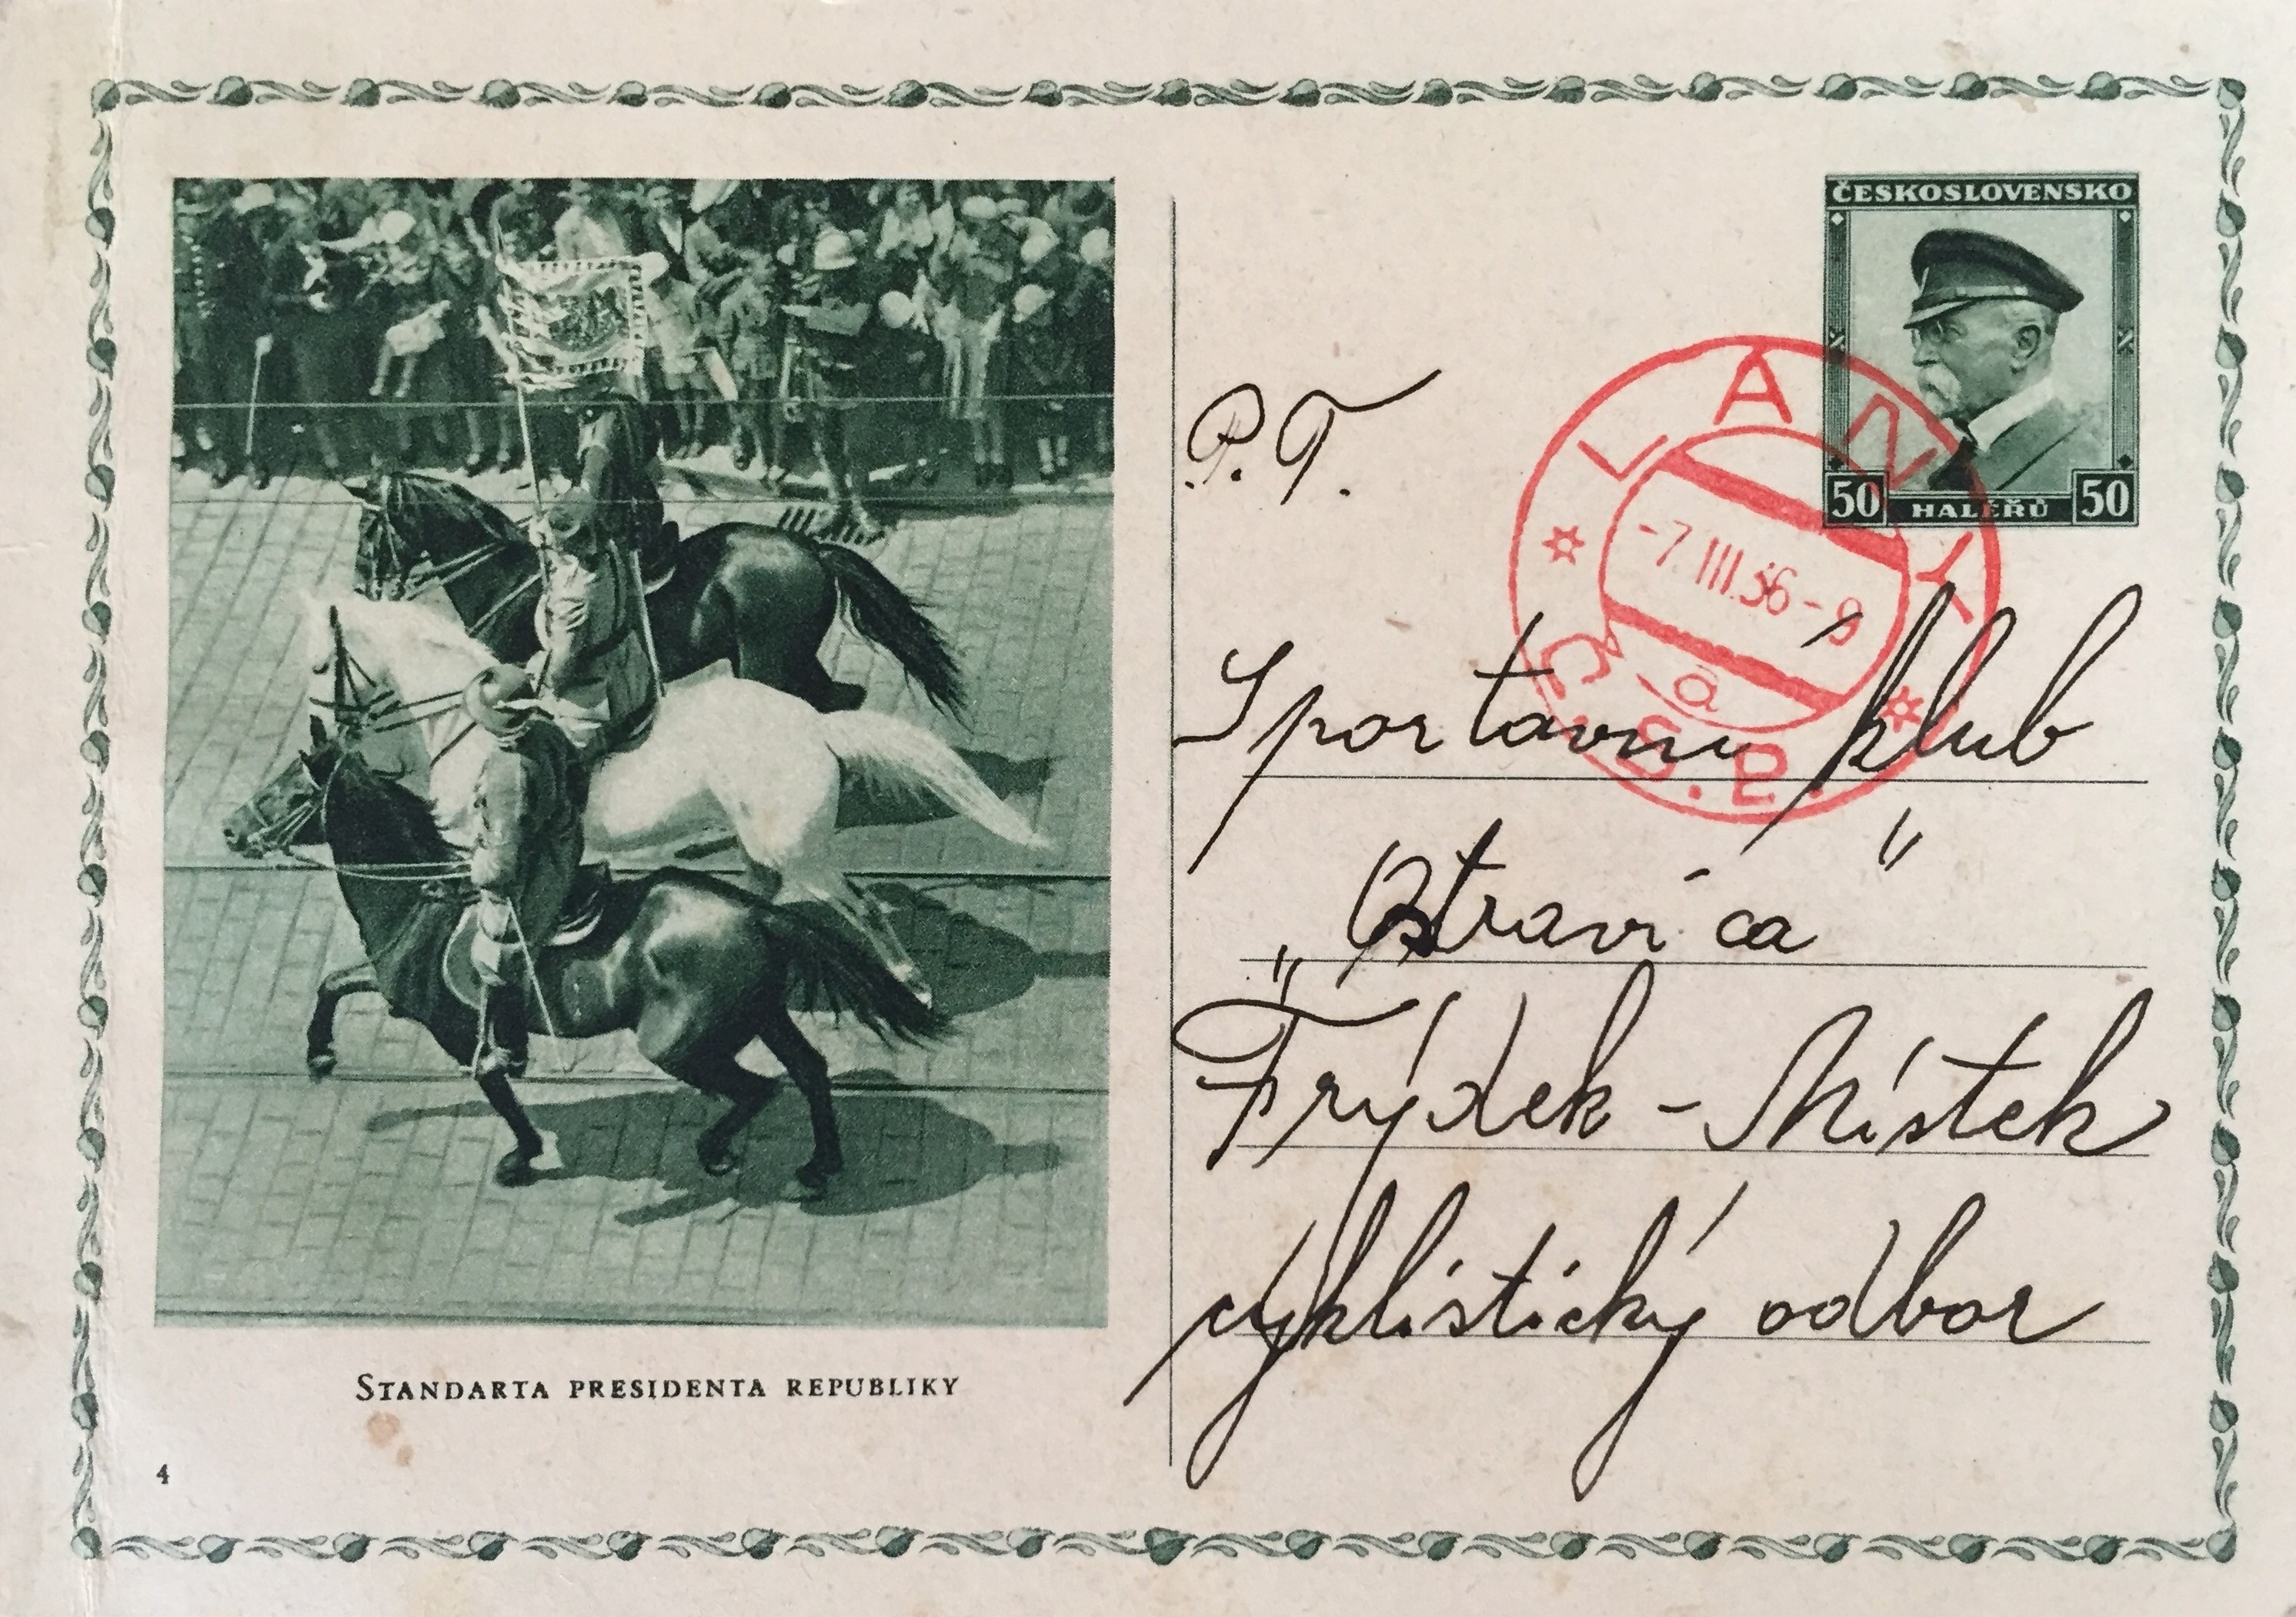 ČESKOSLOVENSKO
50 HALÉŘŮ 50
LÁNY
-7.III.36-9
a
Č.S.P.
P. T.
Sportovní klub
„Ostravica"
Frýdek - Místek
cyklistický odbor
STANDARTA PRESIDENTA REPUBLIKY
4